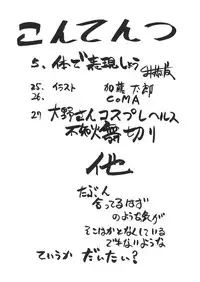 こんてんつ
5. 体で表現しよう
25. イラスト 加藤太郎
26. CoMA
27 大野さんコスプレヘルス
切り
他
たぶん
合ってるはず
のような気が
そこはかとなくしている
でもないような
ていうか だいたい?